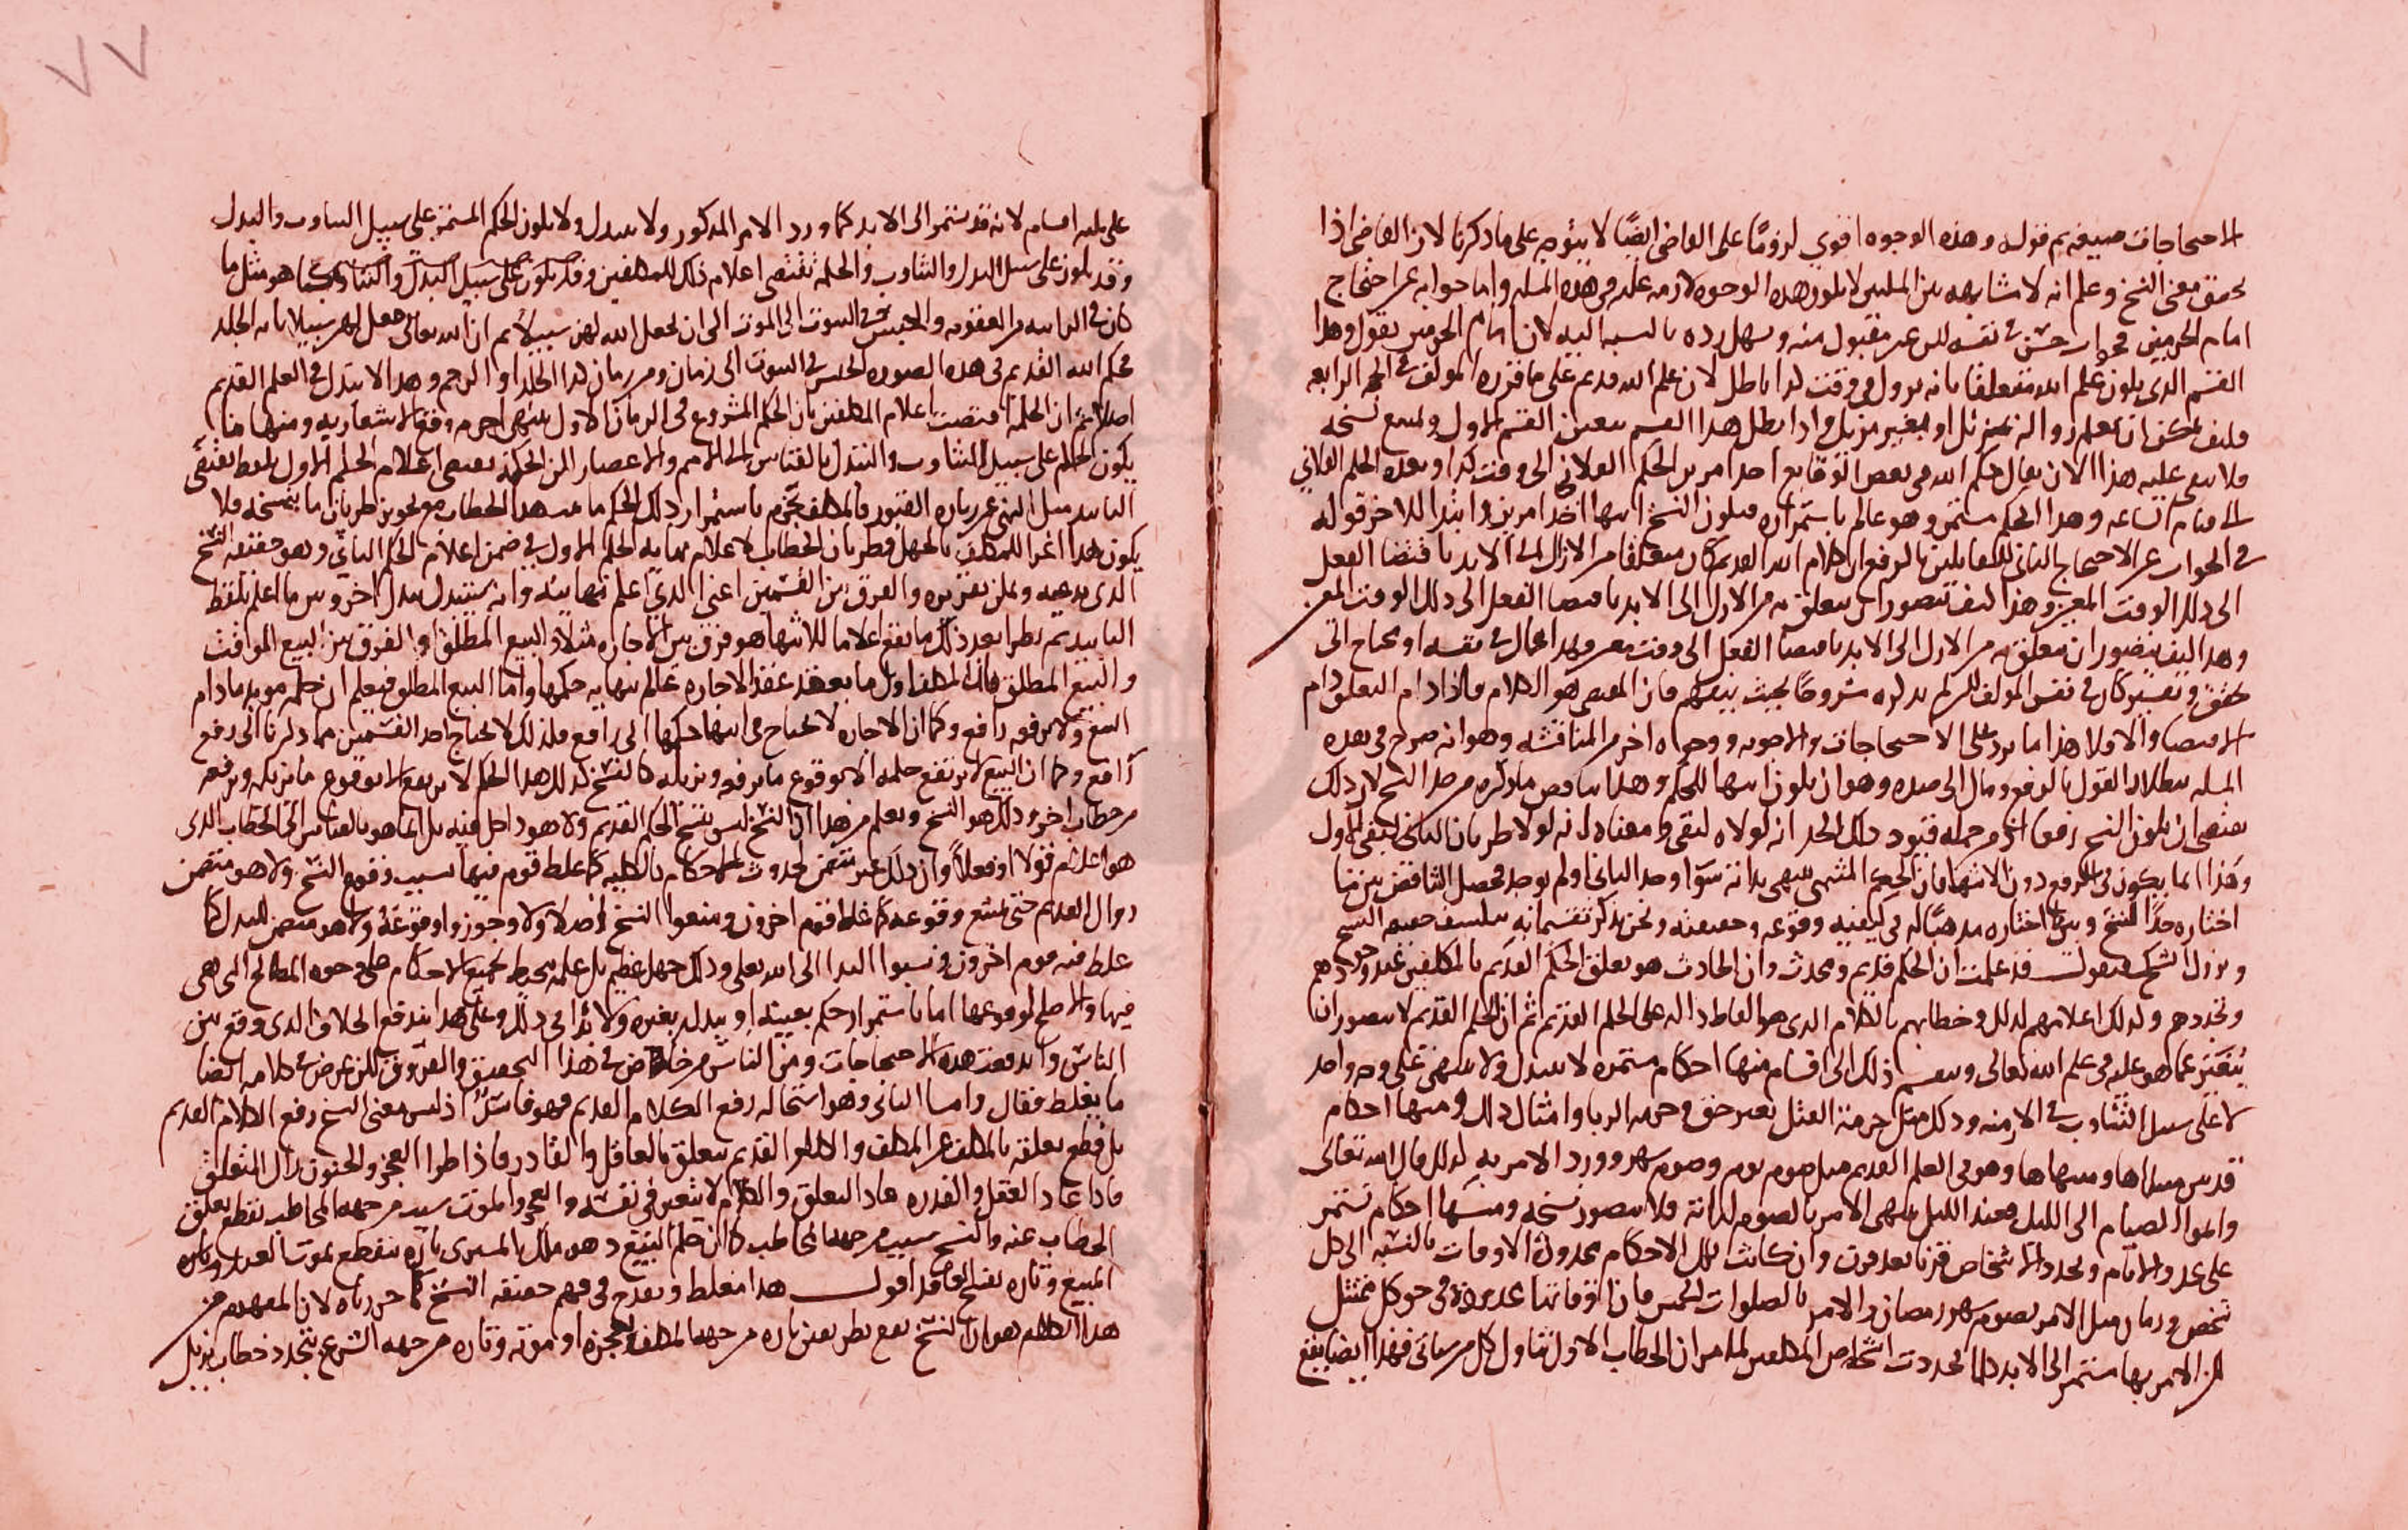 الاحتجاجات صيغة ثم قوله وهذه الوجوه اقوي لزومًا على القاضي ايضًا لا يتوجه على ما ذكرنا لان القاضي اذا
تحقق معنى النسخ وعلم انه لا مشابهة بين لا يكون هذه الوجوه لازمة عليه في هذه المسله واما جوابه عن احتجاج
امام الحرمين فجواب حسن في نفسه لكن غير مقبول منه وسهل رده بالنسبه اليه لان امام الحرمين يقول وهذا
القسم الذي يكون علم الله متعلقا بانه يزول في وقت كذا باطل لان علم الله قديم على ما قرره المولف في الحجه الرابعه
فكيف يمكن ان يعلم زواله بمزيل او بغير مزيل واذا بطل هذا القسم تعين القسم الاول ويمتنع نسخه
فلا يبقى عليه هذا الا ان يقال حكم الله في بعض الوقايع احد امرين الحكم الفلاني الى وقت كذا وبعده الحكم الفلاني
الى قيام الساعه وهذا الحكم مستمر وهو عالم باستمراره فيكون النسخ انتها احد امرين وابتدا للاخر قوله
في الجواب عن الاحتجاج الثاني للقايلين بالرفع ان كلام الله القديم كان متعلقا من الازل الى الابد باقتضا الفعل
الى ذلك الوقت المعين وهذا كيف يتصور ان يتعلق به من الازل الى الابد باقتضا الفعل الى ذلك الوقت المعين
وهذا كيف يتصور ان يتعلق به من الازل الى الابد باقتضا الفعل الى وقت معين وهذا محال في نفسه او يحتاج الى
تحقق وتفسير كان في نفس المولف لكن لم يذكره مشروحًا بحيث يفهم فان المقتضي هو الكلام فاذا دام التعلق دام
الاقتضا والا فلا هذا ما يرد على الاحتجاجات والاجوبه ووجه اخر من المناقشه وهو انه صرح في هذه
المسله ببطلان القول بالرفع ومال الى ضده وهو ان يكون انتها للحكم وهذا يناقض ما ذكره من حد النسخ لان ذلك
يقتضي ان يكون النسخ رفعا اذ من جمله قيود ذلك الحد انه لولاه لبقي ومعناه انه لولا طريان الثاني لبقي الاول
وهذا انما يكون في الرفع دون الانتها فان الحكم المنتهي ينتهي بذاته سوا وجد الثاني او لم يوجد فحصل التناقض بين ما
اختاره حدًا للنسخ وبين ما اختاره مذهبًا له في كيفية وقوعه وحقيقته ونحن نذكر تقسيما به ينكشف حقيقه النسخ
ويزول الشك فنقول قد علمت ان الحكم قديم ومحدث وان الحادث هو تعلق الحكم القديم بالمكلفين عند وجودهم
وتجددهم ولذلك اعلامهم لذلك وخطابهم بالكلام الذي هو الفاظ داله على الحكم القديم ثم ان الحكم القديم لا يتصور ان
يتغير عما هو عليه في علم الله تعالى وينقسم ذلك الى اقسام منها احكام مستمره لا تتبدل ولا تنتهي على وجه واحد
لا على سبيل التناوب في الازمنه وذلك مثل حرمة القتل بغير حق وحرمه الربا وامثال ذلك ومنها احكام
قدر مبداها ومنتهاها وهو في العلم القديم مثل صوم يوم وصوم شهر وورد الامر به كذلك قال الله تعالى
واتموا الصيام الى الليل فعند الليل ينتهي الامر بالصوم لذاته فلا يتصور نسخه ومنها احكام تستمر
على تجدد الايام وتجدد الاشخاص قرنا بعد قرن وان كانت تلك الاحكام محدودة الاوقات بالنسبه الى كل
شخص وزمان مثل الامر بصوم شهر رمضان والامر بالصلوات الخمس فان اوقاتها محدودة في حق كل ممتثل
لكن الامر بها مستمر الى الابد كلما تجددت اشخاص المكلفين لما مر ان الخطاب الاول تناول كل من سياتي فهذا ايضا يقع
على ثلثه اقسام لانه قد يستمر الى الابد كما ورد الامر المذكور ولا يتبدل ولا يكون الحكم المستمر على سبيل التناوب والبدل
وقد يكون على سبيل البدل والتناوب والحكمه تقتضي اعلام ذلك للمكلفين وقد يكون على سبيل البدل والتناوب كما هو مثل ما
كان في الزانيه من العقوبه والحبس في البيوت الى الموت الى ان يجعل الله لهن سبيلا ثم ان الله تعالى جعل لهن سبيلا بايه الجلد
فحكم الله القديم في هذه الصوره الحبس في البيوت الى زمان ومن زمان كذا الجلد او الرجم وهذا لا يتبدل في العلم القديم
اصلا ثم ان الحكمة اقتضت اعلام المكلفين بان الحكم المشروع في الزمان الاول ينتهي وقع الاشعار به ومنها ما
يكون الحكم على سبيل التناوب والتبدل بالقياس الى الامم والاعصار لكن الحكمة تقتضي اعلام الحكم الاول بلفظ يقتضي
التابيد مثل النهي عن زياره القبور فالمكلف يجزم باستمرار ذلك الحكم هذا الخطاب مع تجويز طريان ما ينسخه فلا
يكون هذا اغرا للمكلف بالجهل فطريان الخطاب لاعلام نهايه الحكم الاول في ضمن اعلام الحكم الثاني وهو حقيقه النسخ
الذي نذهبه ويمكن تقريره والفرق بين القسمين اعني الذي اعلم نهايته وانه يستبدل ببدل اخر وبين ما اعلم بلفظ
التابيد ثم يطرا بعد ذلك ما يقع اعلاما للانتها هو فرق بين الاجاره مثلا والبيع المطلق او الفرق بين البيع الموقت
والبيع المطلق فان المكلف اول ما يعقد عقد الاجاره عالم بنهايه حكمها واما البيع المطلق فيعلم ان حكمه موبد ما دام
البيع ولا يرفعه رافع وكما ان الاجاره لا تحتاج في انتها حكمها الى رافع فلذلك لا يحتاج احد القسمين مما ذكرنا الى رفع
رافع وكما ان البيع لا يرتفع حكمه الا بوقوع ما يرفعه ويزيله كالفسخ كذلك هذا الحكم لا يرتفع الا بوقوع ما يزيله ويرفعه
من خطاب اخر وذلك هو النسخ ويعلم من هذا ان النسخ ليس بنسخ الحكم القديم ولا هو داخل فيه بل انما هو بالقياس الى الخطاب الذي
هو اعلام قولا او فعلا وان ذلك غير متضمن لحدوث الاحكام بالكليه كما غلط قوم فيها بسبب وقوع النسخ ولا هو متضمن
زوال القديم حتى يمتنع وقوعه كما غلط قوم اخرون ومنعوا النسخ اصلا ولا وجوزوا وقوعه ولا هو متضمن للبدا كما
غلط فيه قوم اخرون ونسبوا البدا الى الله تعلى وذلك جهل عظيم بل علمه محيط بجميع الاحكام على وجوه المصالح التي هي
فيها والاصلح لوقوعها اما باستمرار حكم بعينه او تبدله بغيره ولا بدا في ذلك وعلى هذا يندفع الخلاف الذي وقع بين
الناس واندفعت هذه الاحتجاجات ومن الناس من خاض في هذا التحقيق والفروق لكن عرض في كلامه ايضا
ما يغلط فقال واما الثاني وهو استحاله رفع الكلام القديم فهو فاسد اذ ليس معنى النسخ رفع الكلام القديم
بل قطع تعلقه بالمكلف عن المكلف والكلام القديم يتعلق بالعاقل والقادر فاذا طرا العجز والجنون زال التعلق
فاذا عاد العقل والقدره عاد التعلق والكلام لا يتغير في نفسه والعجز والموت سبب من جهه المخاطب يقطع تعلق
الخطاب عنه والنسخ سبب من جهه المخاطب كما ان حكم البيع وهو ملك المشتري تاره ينقطع بموت العبد وتاره
المبيع وتاره بفسخ العاقد اقول هذا مغلط ويقدح في فهم حقيقه النسخ كما حررناه لان المفهوم من
هذا الكلام هو ان النسخ يقع بطريقين تاره من جهه المكلف بعجزه او موته وتاره من جهه الشرع بتجدد خطاب يزيل